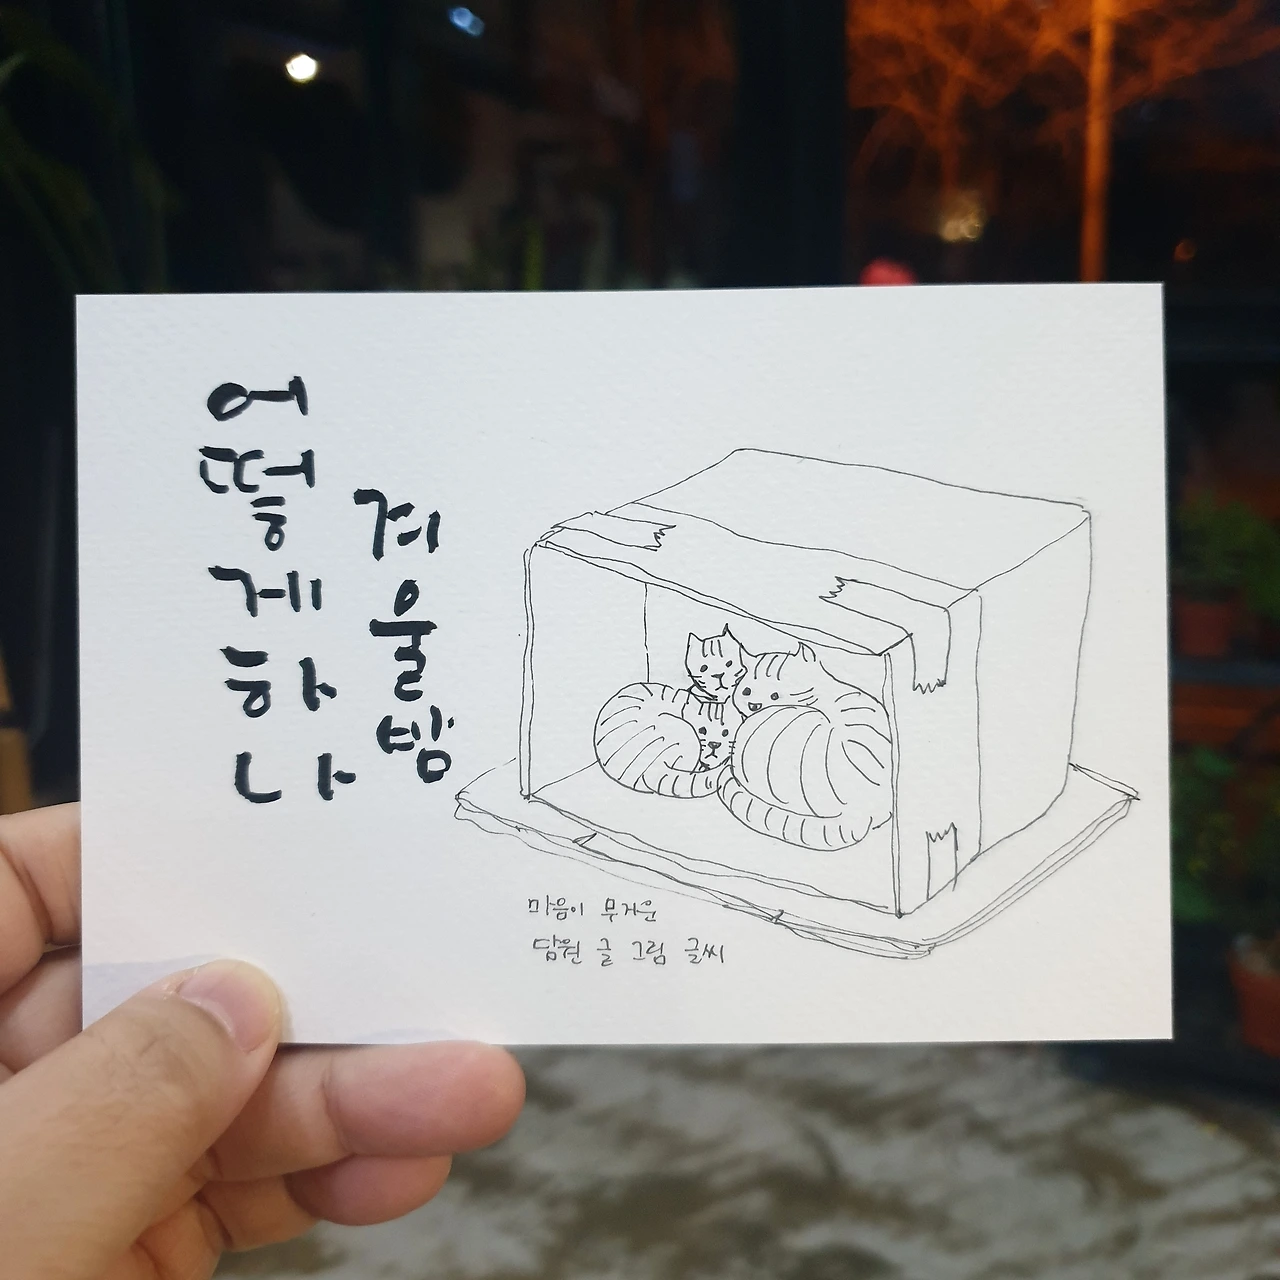 어떻게하나
겨울밤
마음이 무거운
담원 글 그림 글씨